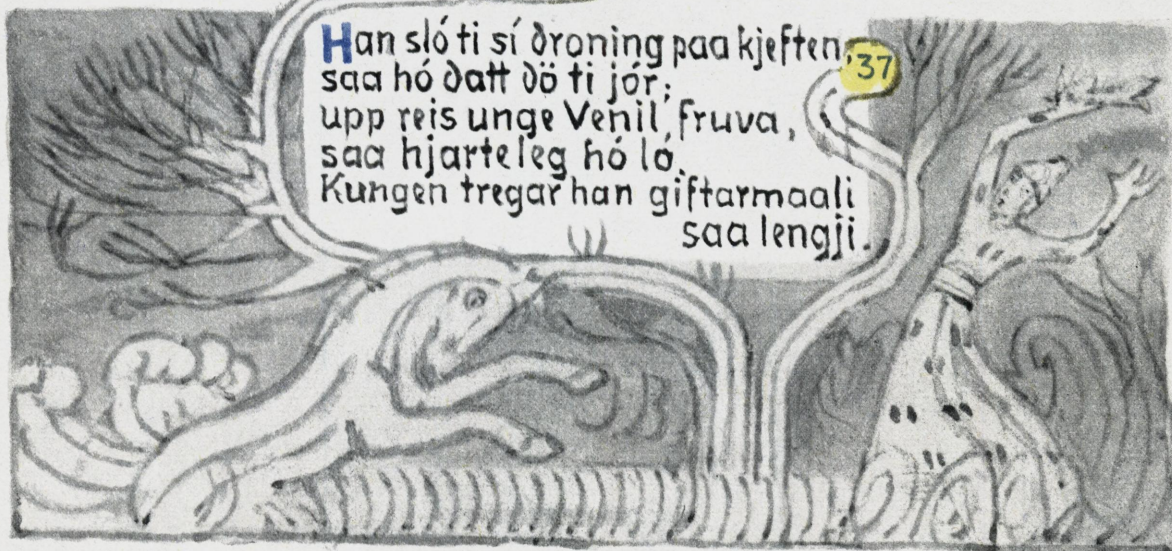 Han sló ti sí droning paa kjeften,
saa hó datt dö ti jór;
upp reis unge Venil, fruva,
saa hjarteleg hó ló.
Kungen tregar han giftarmaali
saa lengji.
'37